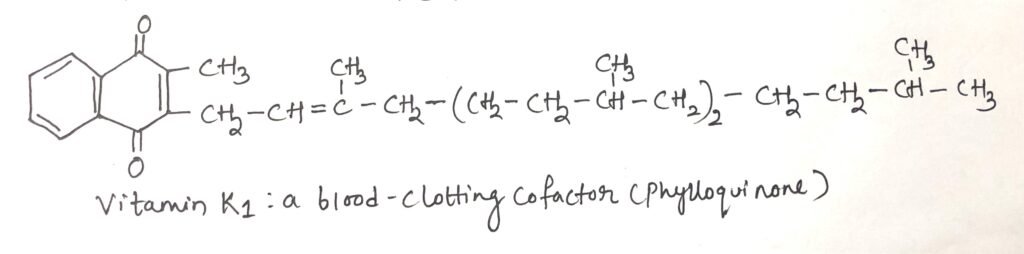 O
CH3 CH3 CH3 CH3
CH2-CH=C-CH2-(CH2-CH2-CH-CH2)2-CH2-CH2-CH-CH3
O
Vitamin K1 : a blood-clotting cofactor (phylloquinone)